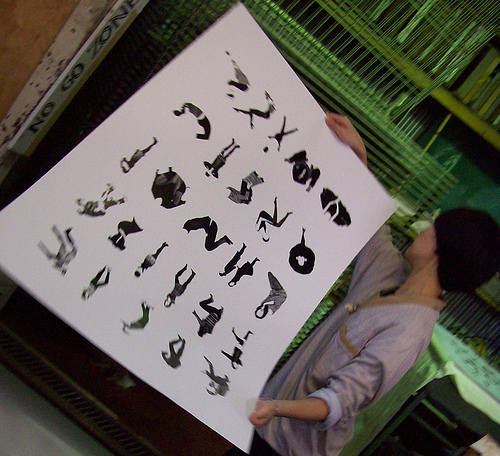 NO GO ZONE